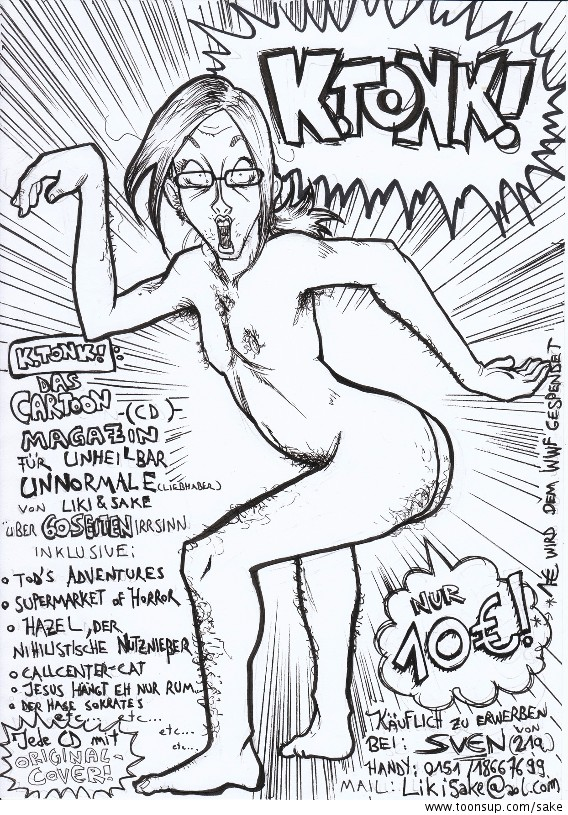 K.TONK!
K.TONK!:
DAS
CARTOON-(CD)-
MAGAZIN
FÜR UNHEILBAR
UNNORMALE (LIEBHABER)
VON LIKI & SAKE
ÜBER 60 SEITEN IRRSINN
INKLUSIVE:
• TOD'S ADVENTURES
• SUPERMARKET of HORROR
• HAZEL, DER
NIHILISTISCHE NUTZNIEßER
• CALLCENTER-CAT
• JESUS HÄNGT EH NUR RUM...
• DER HASE SOKRATES
etc... etc...
etc...
etc...
Jede CD mit
ORIGINAL-
COVER!
NUR
10€!**
**1€ WIRD DEM WWF GESPENDET!
KÄUFLICH ZU ERWERBEN
BEI: SVEN (VON 219)
HANDY: 0151/18667699
MAIL: LikiSake@aol.com
www.toonsup.com/sake